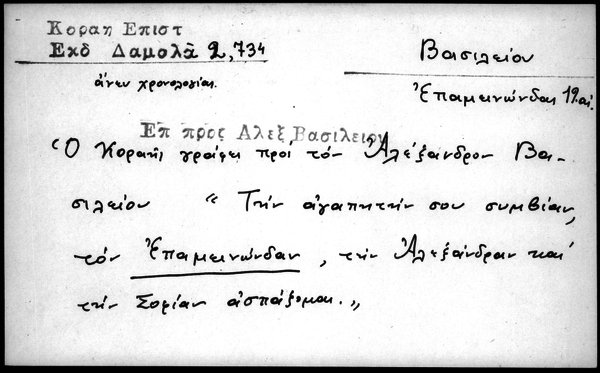 Κοραη Επιστ
Εκδ Δαμολᾶ 2,734
ἄνευ χρονολογίας.
Βασιλείου
Ἐπαμεινώνδας 19 αἰ.
Επ προς Αλεξ Βασιλειου
Ὁ Κοραῆς γράφει πρὸς τὸν Ἀλέξανδρον Βα-
σιλείου "Τὴν ἀγαπητήν σου συμβίαν,
τὸν Ἐπαμεινώνδαν, τὴν Ἀλεξάνδραν καὶ
τὴν Σοφίαν ἀσπάζομαι."